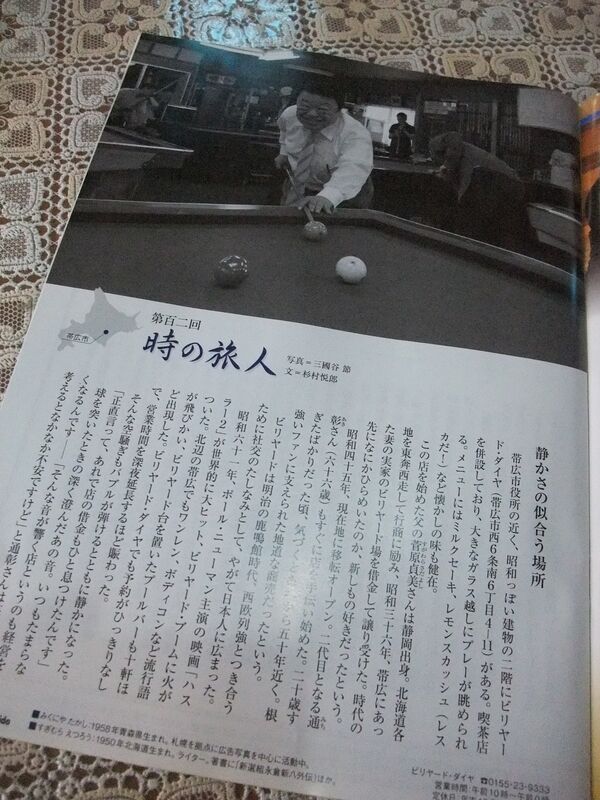 帯広市
第百二回
時の旅人
写真=三國谷 節
文=杉村悦郎
静かさの似合う場所
帯広市役所の近く、昭和っぽい建物の二階にビリヤー
ド・ダイヤ(帯広市西6条南6丁目4-11)がある。喫茶店
を併設しており、大きなガラス越しにプレーが眺められ
る。メニューにはミルクセーキ、レモンスカッシュ(レス
カだ!)など懐かしの味も健在。
この店を始めた父の菅原貞美さんは静岡出身。北海道各
地を東奔西走して行商に励み、昭和三十六年、帯広にあっ
た妻の実家のビリヤード場を借金して譲り受けた。時代の
先になにかひらめいたのか、新しもの好きだったという。
昭和四十五年、現在地に移転オープン。二代目となる通
彰さん(六十六歳)もすぐに店を手伝い始めた。二十歳す
ぎたばかりだった頃、気づくと
から五十年近く。根
強いファンに支えられた地道な商売だったという。
ビリヤードは明治の鹿鳴館時代、西欧列強とつき合う
ために社交のたしなみとして、やがて日本人に広まった。
昭和六十一年、ポール・ニューマン主演の映画「ハス
ラー2」が世界的に大ヒット、ビリヤード・ブームに火が
ついた。北辺の帯広でもワンレン、ボディコンなど流行語
が飛びかい、ビリヤード台を置いたプールバーも十軒ほ
ど出現した。ビリヤード・ダイヤでも予約がひっきりなし
で、営業時間を深夜延長するほど賑わった。
そんな空騒ぎもバブルが弾けるとともに静かになった。
「正直言って、あれで店の借金もひと息つけたんです」
球を突いたときの深く澄んだあの音。いつもたまらな
くなるんです――「そんな音が響く店というのも経営を
考えるとなかなか不安ですけど」と通彰さんは
■みくにや たかし:1958年青森県生まれ。札幌を拠点に広告写真を中心に活動中。
■すぎむら えつろう:1950年北海道生まれ。ライター。著書に「新選組永倉新八外伝」ほか。
ビリヤード・ダイヤ ☎0155-23-9333
営業時間:午前10時~午
定休日: